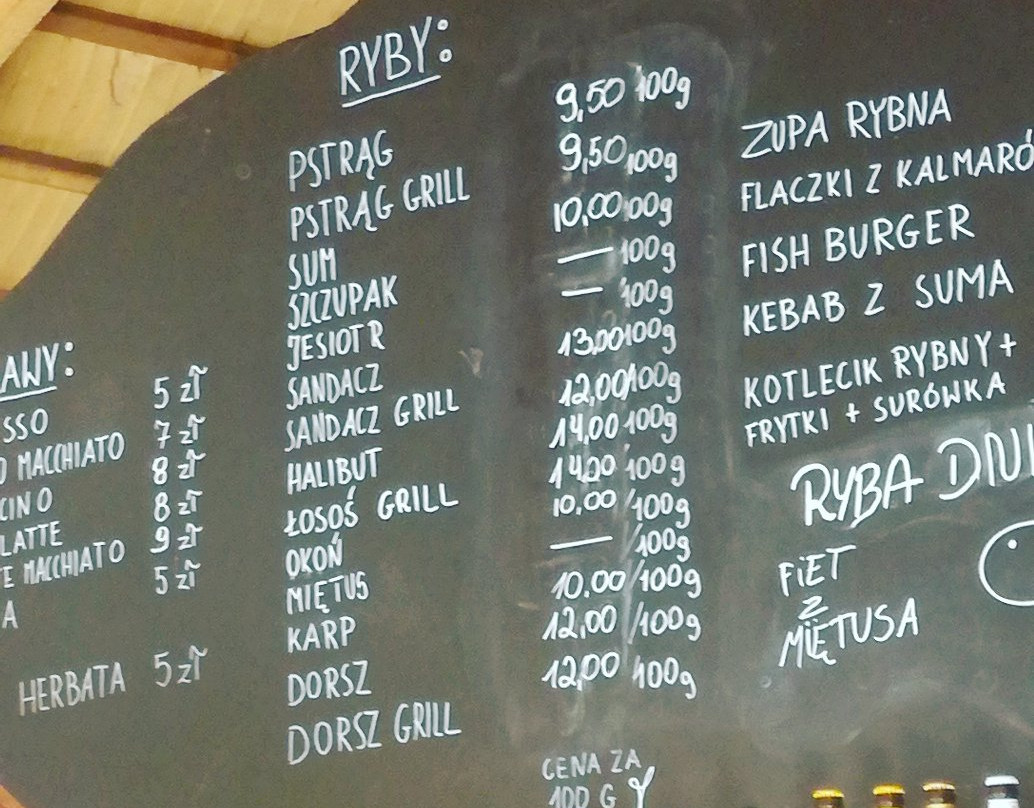 AWY:
SSO 5 zł
O MACCHIATO 7 zł
CINO 8 zł
LATTE 8 zł
TE MACCHIATO 9 zł
A 5 zł
HERBATA 5 zł
RYBY:
PSTRĄG 9,50 100g
PSTRĄG GRILL 9,50 100g
SUM 10,00 100g
SZCZUPAK — 100g
JESIOTR — 100g
SANDACZ 13,00 100g
SANDACZ GRILL 12,00/100g
HALIBUT 14,00 100g
ŁOSOŚ GRILL 14,00 100g
OKOŃ 10,00/100g
MIĘTUS — /100g
KARP 10,00/100g
DORSZ 12,00/100g
DORSZ GRILL 12,00 100g
CENA ZA
100 G
ZUPA RYBNA
FLACZKI Z KALMARÓ
FISH BURGER
KEBAB Z SUMA
KOTLECIK RYBNY +
FRYTKI + SURÓWKA
RYBA DNI
FiET
Z
MIĘTUSA